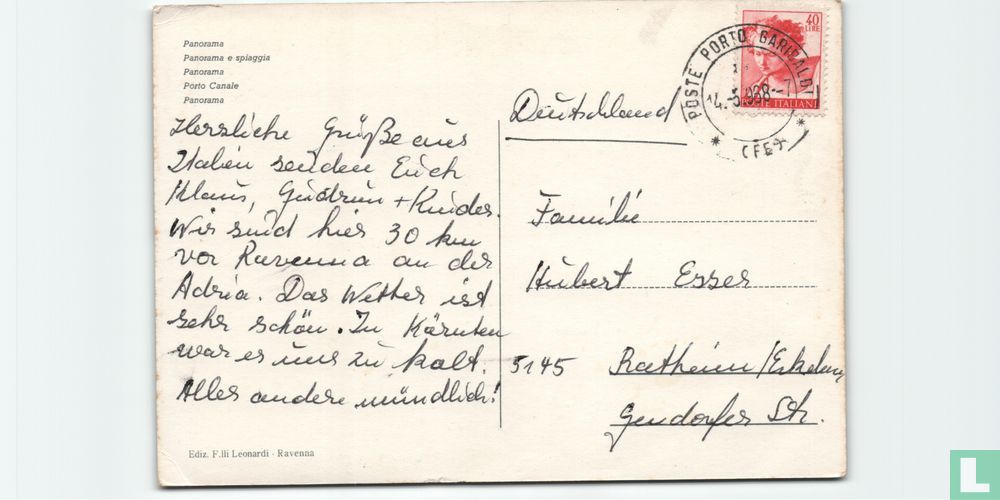 Panorama
Panorama e spiaggia
Panorama
Porto Canale
Panorama
Herzliche Grüße aus
Italien senden Euch
Klaus, Gudrun + Kinder.
Wir sind hier 30 km
vor Ravenna an der
Adria. Das Wetter ist
sehr schön. In Kärnten
war es uns zu kalt.
Alles andere mündlich!
Ediz. F.lli Leonardi - Ravenna
40
LIRE
POSTE ITALIANE
POSTE PORTO GARIBALDI
(FE)
Deutschland
Familie
Hubert Esser
5145 Ratheim/Erkelenz
Str.
L